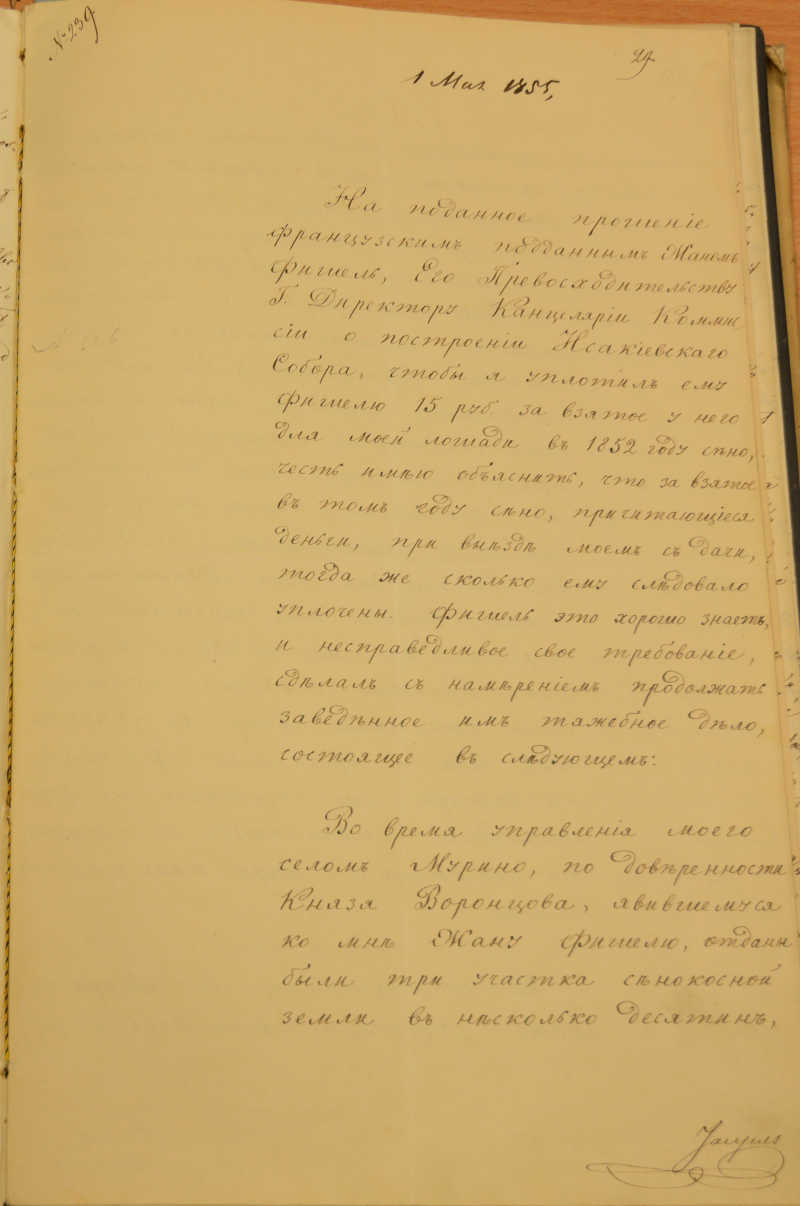 № 239
29
1 Мая 1855,
На поданное прошеніе
французскимъ подданнымъ Жаномъ
Фишель, Его Превосходительству
Г. Директору Канцеляріи Коммис
сіи о построеніи Исакіевскаго
Собора, чтобы я уплотилъ ему
Фишелю 15 руб. за взятое у него
для моей лошади въ 1852 году сѣно,
честь имѣю объяснить, что за взятое
въ томъ году сѣно, причитающіеся
деньги, при выѣздѣ моемъ съ дачи,
тогда же сколько ему слѣдовало
уплочены. Фишель это хорошо знаетъ,
и несправедливое свое требованіе,
сдѣлалъ съ намѣреніемъ продолжать
заведѣнное имъ тяжебное дѣло,
состоящее въ слѣдующемъ:
Во время управленія моего
селомъ Мурино, по довѣренности
Князя Воронцова, явившемуся
ко мнѣ Жану Фишелю, отданы
были три участка сѣнокосной
земли въ нѣсколько десятинъ,